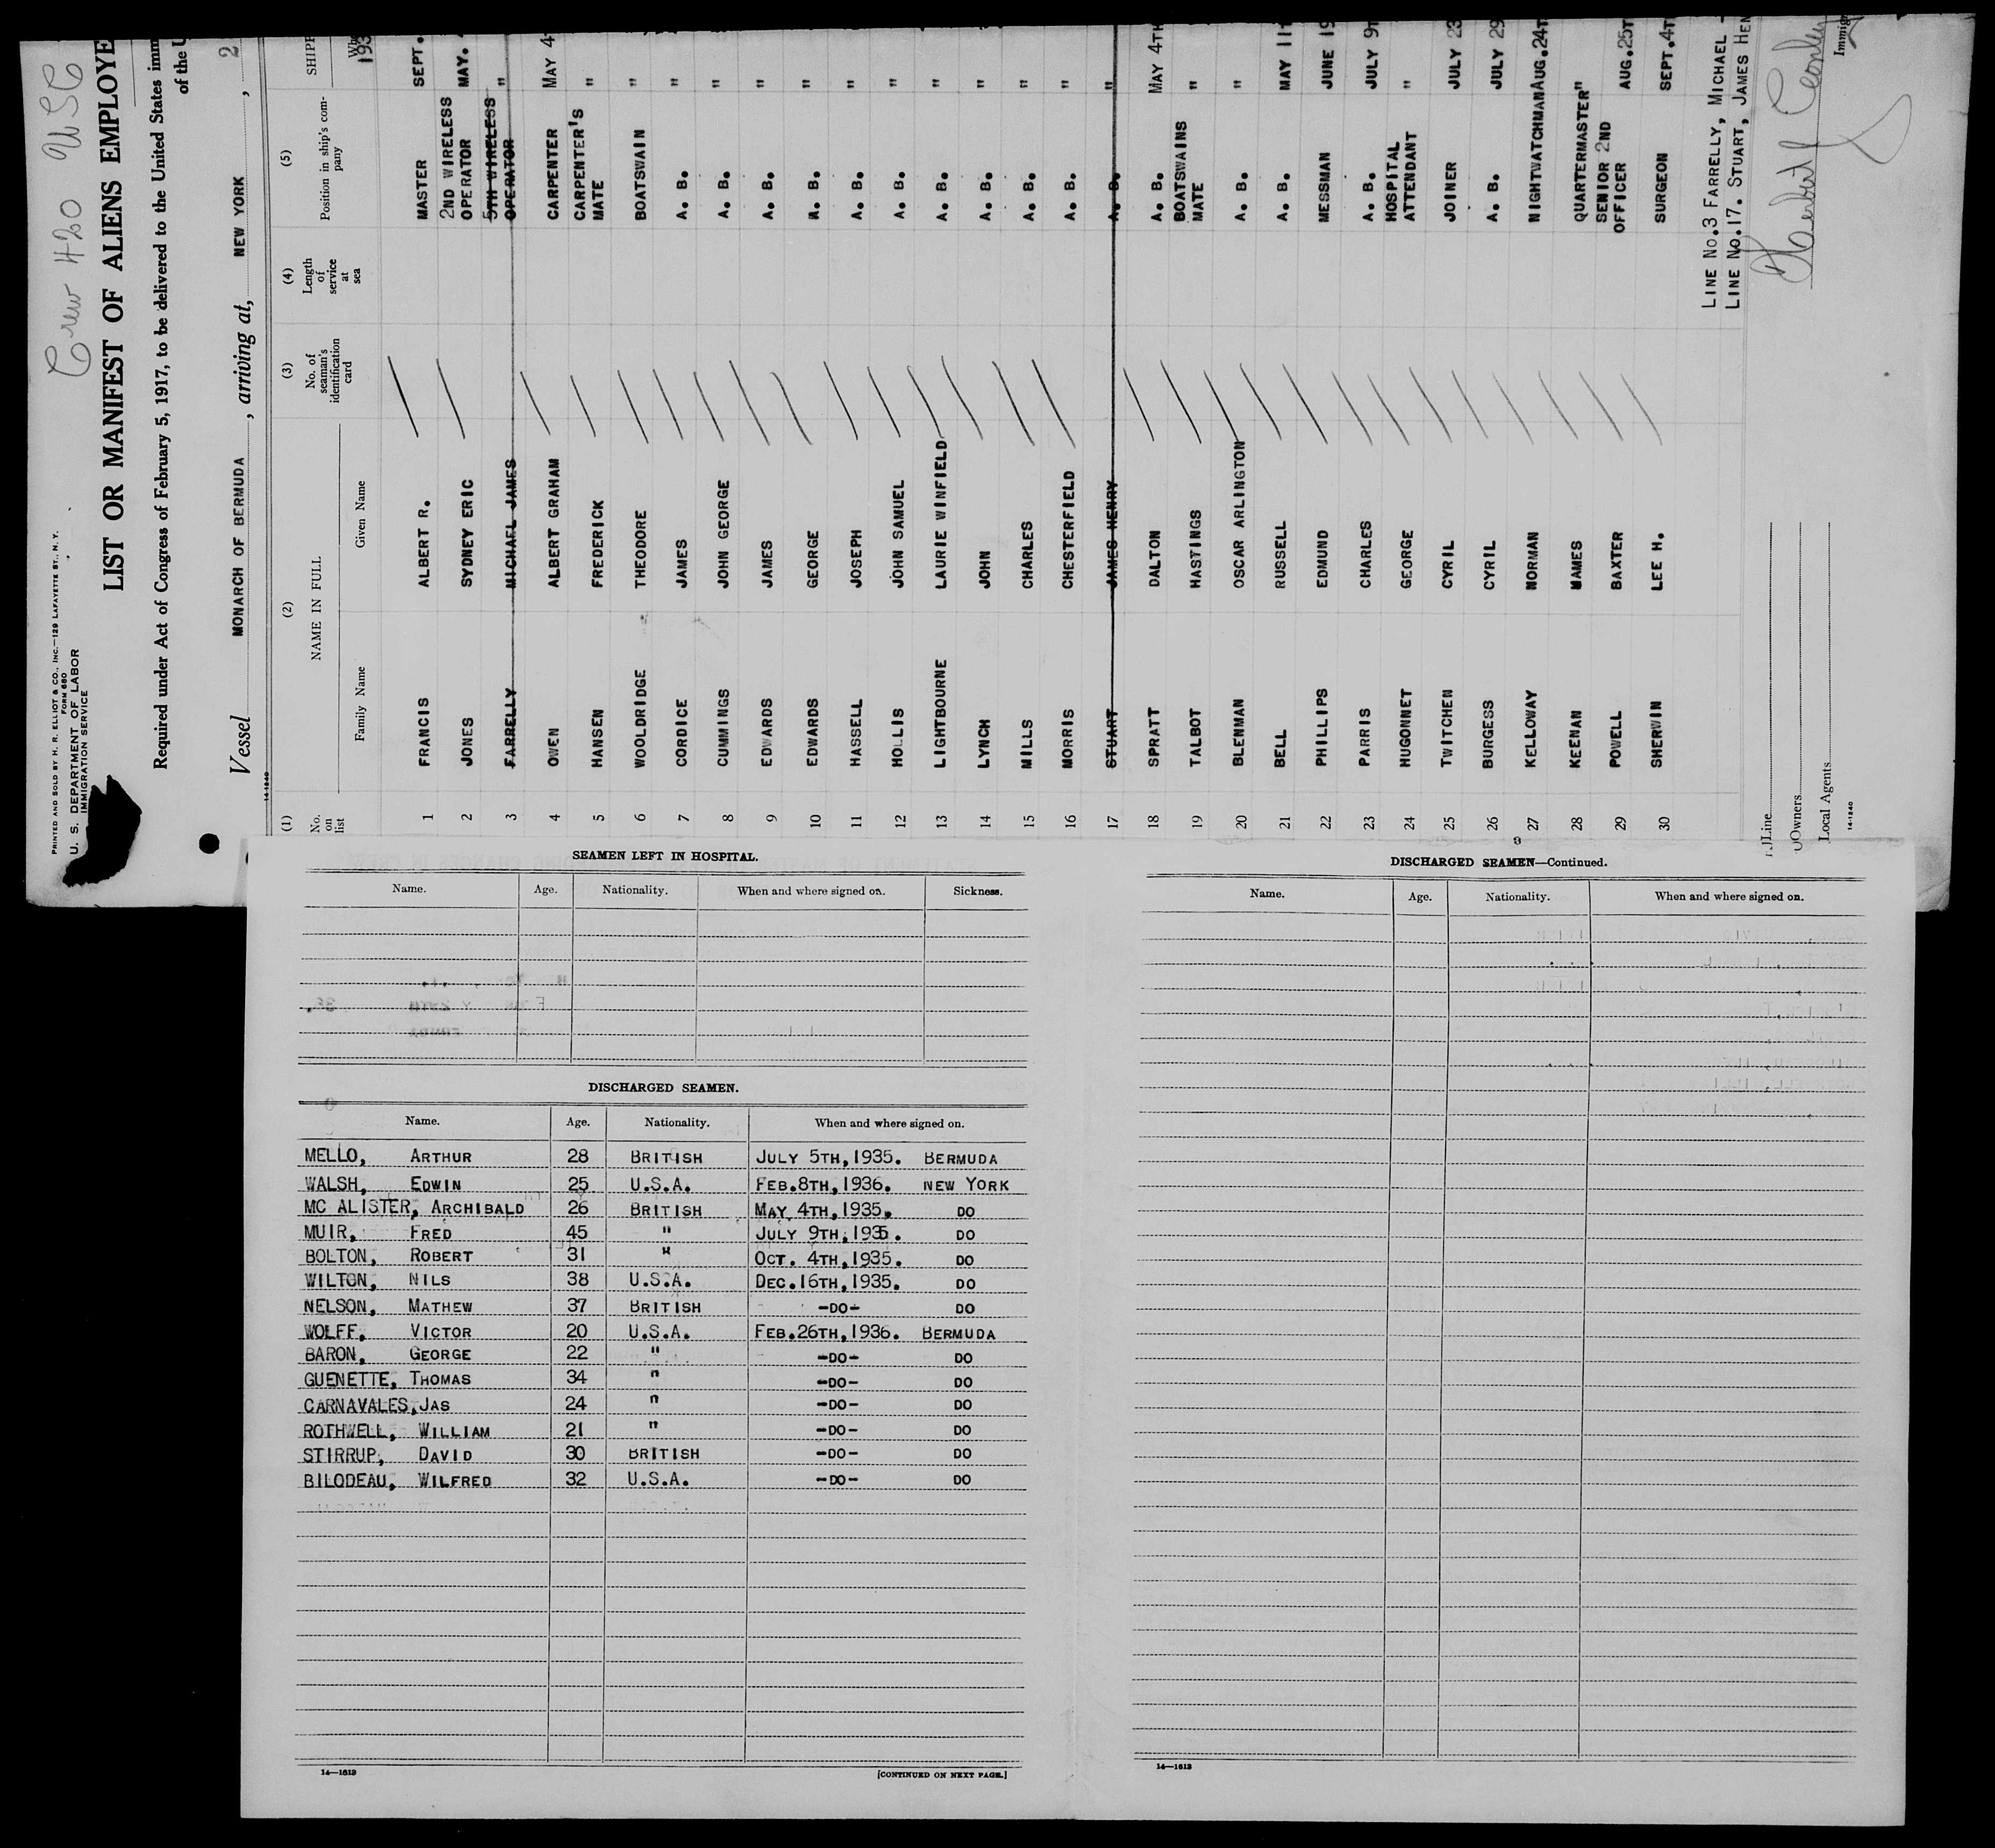 PRINTED AND SOLD BY H. R. ELLIOT & CO., INC.—129 LAFAYETTE ST., N.Y.
FORM 680
U. S. DEPARTMENT OF LABOR
IMMIGRATION SERVICE
Crew 420 USC
LIST OR MANIFEST OF ALIENS EMPLOYE
Required under Act of Congress of February 5, 1917, to be delivered to the United States imm
of the U
Vessel MONARCH OF BERMUDA , arriving at, NEW YORK , 2
14-1240
(1) (2) (3) (4) (5)
No. on list NAME IN FULL No. of seaman's identification card Length of service at sea Position in ship's company SHIPP
Family Name Given Name Wh
193
1 FRANCIS ALBERT R. MASTER SEPT.
2 JONES SYDNEY ERIC 2ND WIRELESS OPERATOR MAY.
3 FARRELLY MICHAEL JAMES 5TH WIRELESS OPERATOR "
4 OWEN ALBERT GRAHAM CARPENTER MAY 4
5 HANSEN FREDERICK CARPENTER'S MATE "
6 WOOLDRIDGE THEODORE BOATSWAIN "
7 CORDICE JAMES A. B. "
8 CUMMINGS JOHN GEORGE A. B. "
9 EDWARDS JAMES A. B. "
10 EDWARDS GEORGE A. B. "
11 HASSELL JOSEPH A. B. "
12 HOLLIS JOHN SAMUEL A. B. "
13 LIGHTBOURNE LAURIE WINFIELD A. B. "
14 LYNCH JOHN A. B. "
15 MILLS CHARLES A. B. "
16 MORRIS CHESTERFIELD A. B. "
17 STUART JAMES HENRY A. B. "
18 SPRATT DALTON A. B. MAY 4TH
19 TALBOT HASTINGS BOATSWAINS MATE "
20 BLENMAN OSCAR ARLINGTON A. B. "
21 BELL RUSSELL A. B. MAY 11T
22 PHILLIPS EDMUND MESSMAN JUNE 19
23 PARRIS CHARLES A. B. JULY 9T
24 HUGONNET GEORGE HOSPITAL ATTENDANT "
25 TWITCHEN CYRIL JOINER JULY 23
26 BURGESS CYRIL A. B. JULY 29
27 KELLOWAY NORMAN NIGHTWATCHMAN AUG.24T
28 KEENAN JAMES QUARTERMASTER "
29 POWELL BAXTER SENIOR 2ND OFFICER AUG.25T
30 SHERWIN LEE H. SURGEON SEPT.4T
LINE NO.3 FARRELLY, MICHAEL -
LINE NO.17. STUART, JAMES HEN
Line
Owners
Local Agents
Immigr
14-1240
SEAMEN LEFT IN HOSPITAL.
Name. Age. Nationality. When and where signed on. Sickness.
DISCHARGED SEAMEN.
Name. Age. Nationality. When and where signed on.
MELLO, ARTHUR 28 BRITISH JULY 5TH,1935. BERMUDA
WALSH, EDWIN 25 U.S.A. FEB.8TH,1936. NEW YORK
MC ALISTER, ARCHIBALD 26 BRITISH MAY 4TH,1935. DO
MUIR, FRED 45 " JULY 9TH,1935. DO
BOLTON, ROBERT 31 " OCT. 4TH,1935. DO
WILTON, NILS 38 U.S.A. DEC.16TH,1935. DO
NELSON, MATHEW 37 BRITISH -DO- DO
WOLFF, VICTOR 20 U.S.A. FEB.26TH,1936. BERMUDA
BARON, GEORGE 22 " -DO- DO
GUENETTE, THOMAS 34 " -DO- DO
CARNAVALES, JAS 24 " -DO- DO
ROTHWELL, WILLIAM 21 " -DO- DO
STIRRUP, DAVID 30 BRITISH -DO- DO
BILODEAU, WILFRED 32 U.S.A. -DO- DO
14—1613
[CONTINUED ON NEXT PAGE.]
DISCHARGED SEAMEN—Continued.
Name. Age. Nationality. When and where signed on.
14—1613